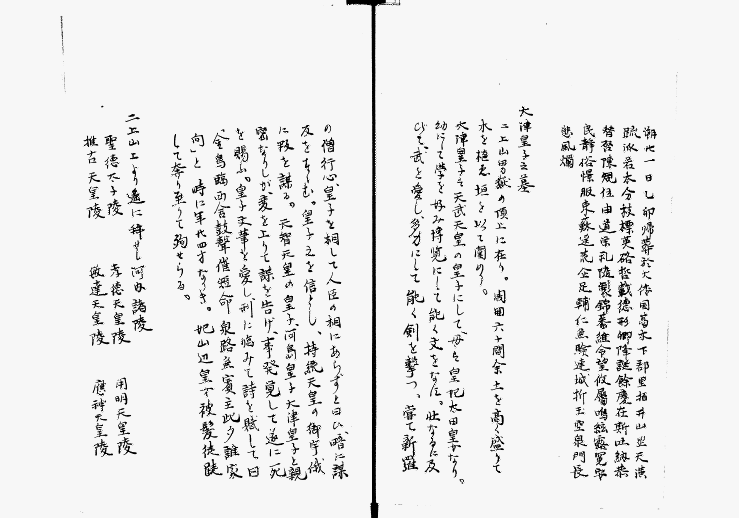 朔廿一日乙卯帰葬於大倭国葛木下郡里狛井山崗天潢
疏派若木分枝標英啓哲載徳形卿降誕餘慶在斯吐納参
賛啓陳規位由道崇礼随製錦蕃維令望攸属鳴絃露冕安
民静俗憬服来蘇遥荒企足輔仁無験連城折玉空泉門長
悲風燭
大津皇子之墓
二上山男嶽の頂上に在り。周囲六十間余土を高く盛りて
木を植え垣を以て囲めり。
大津皇子は天武天皇の皇子にして、母を皇妃太田皇女なり。
幼にして学を好み博覧にして能く文をなす。壮なるに及
びて、武を愛し、多力にして能く剣を撃つ。嘗て新羅
の僧行心、皇子を相して人臣の相にあらずと曰ひ、暗に謀
反をすゝむ。皇子之を信とし、持統天皇の御宇儀
に叛を謀る。天智天皇の皇子河島皇子大津皇子と親
密なりしが変を上りて謀を告げ、事発覚して遂に死
を賜ふ。皇子文筆を愛し、刑に臨みて詩を賦して曰
「金烏臨西舎鼓声催短命泉路無賓主此夕誰家
向」と 時に年廿四才なりき。妃山辺皇女被髪徒跣
して奔り至りて殉せらる。
二上山上より遥に拝せし河内諸陵
聖徳太子陵 孝徳天皇陵 用明天皇陵
推古天皇陵 敏達天皇陵 應神天皇陵